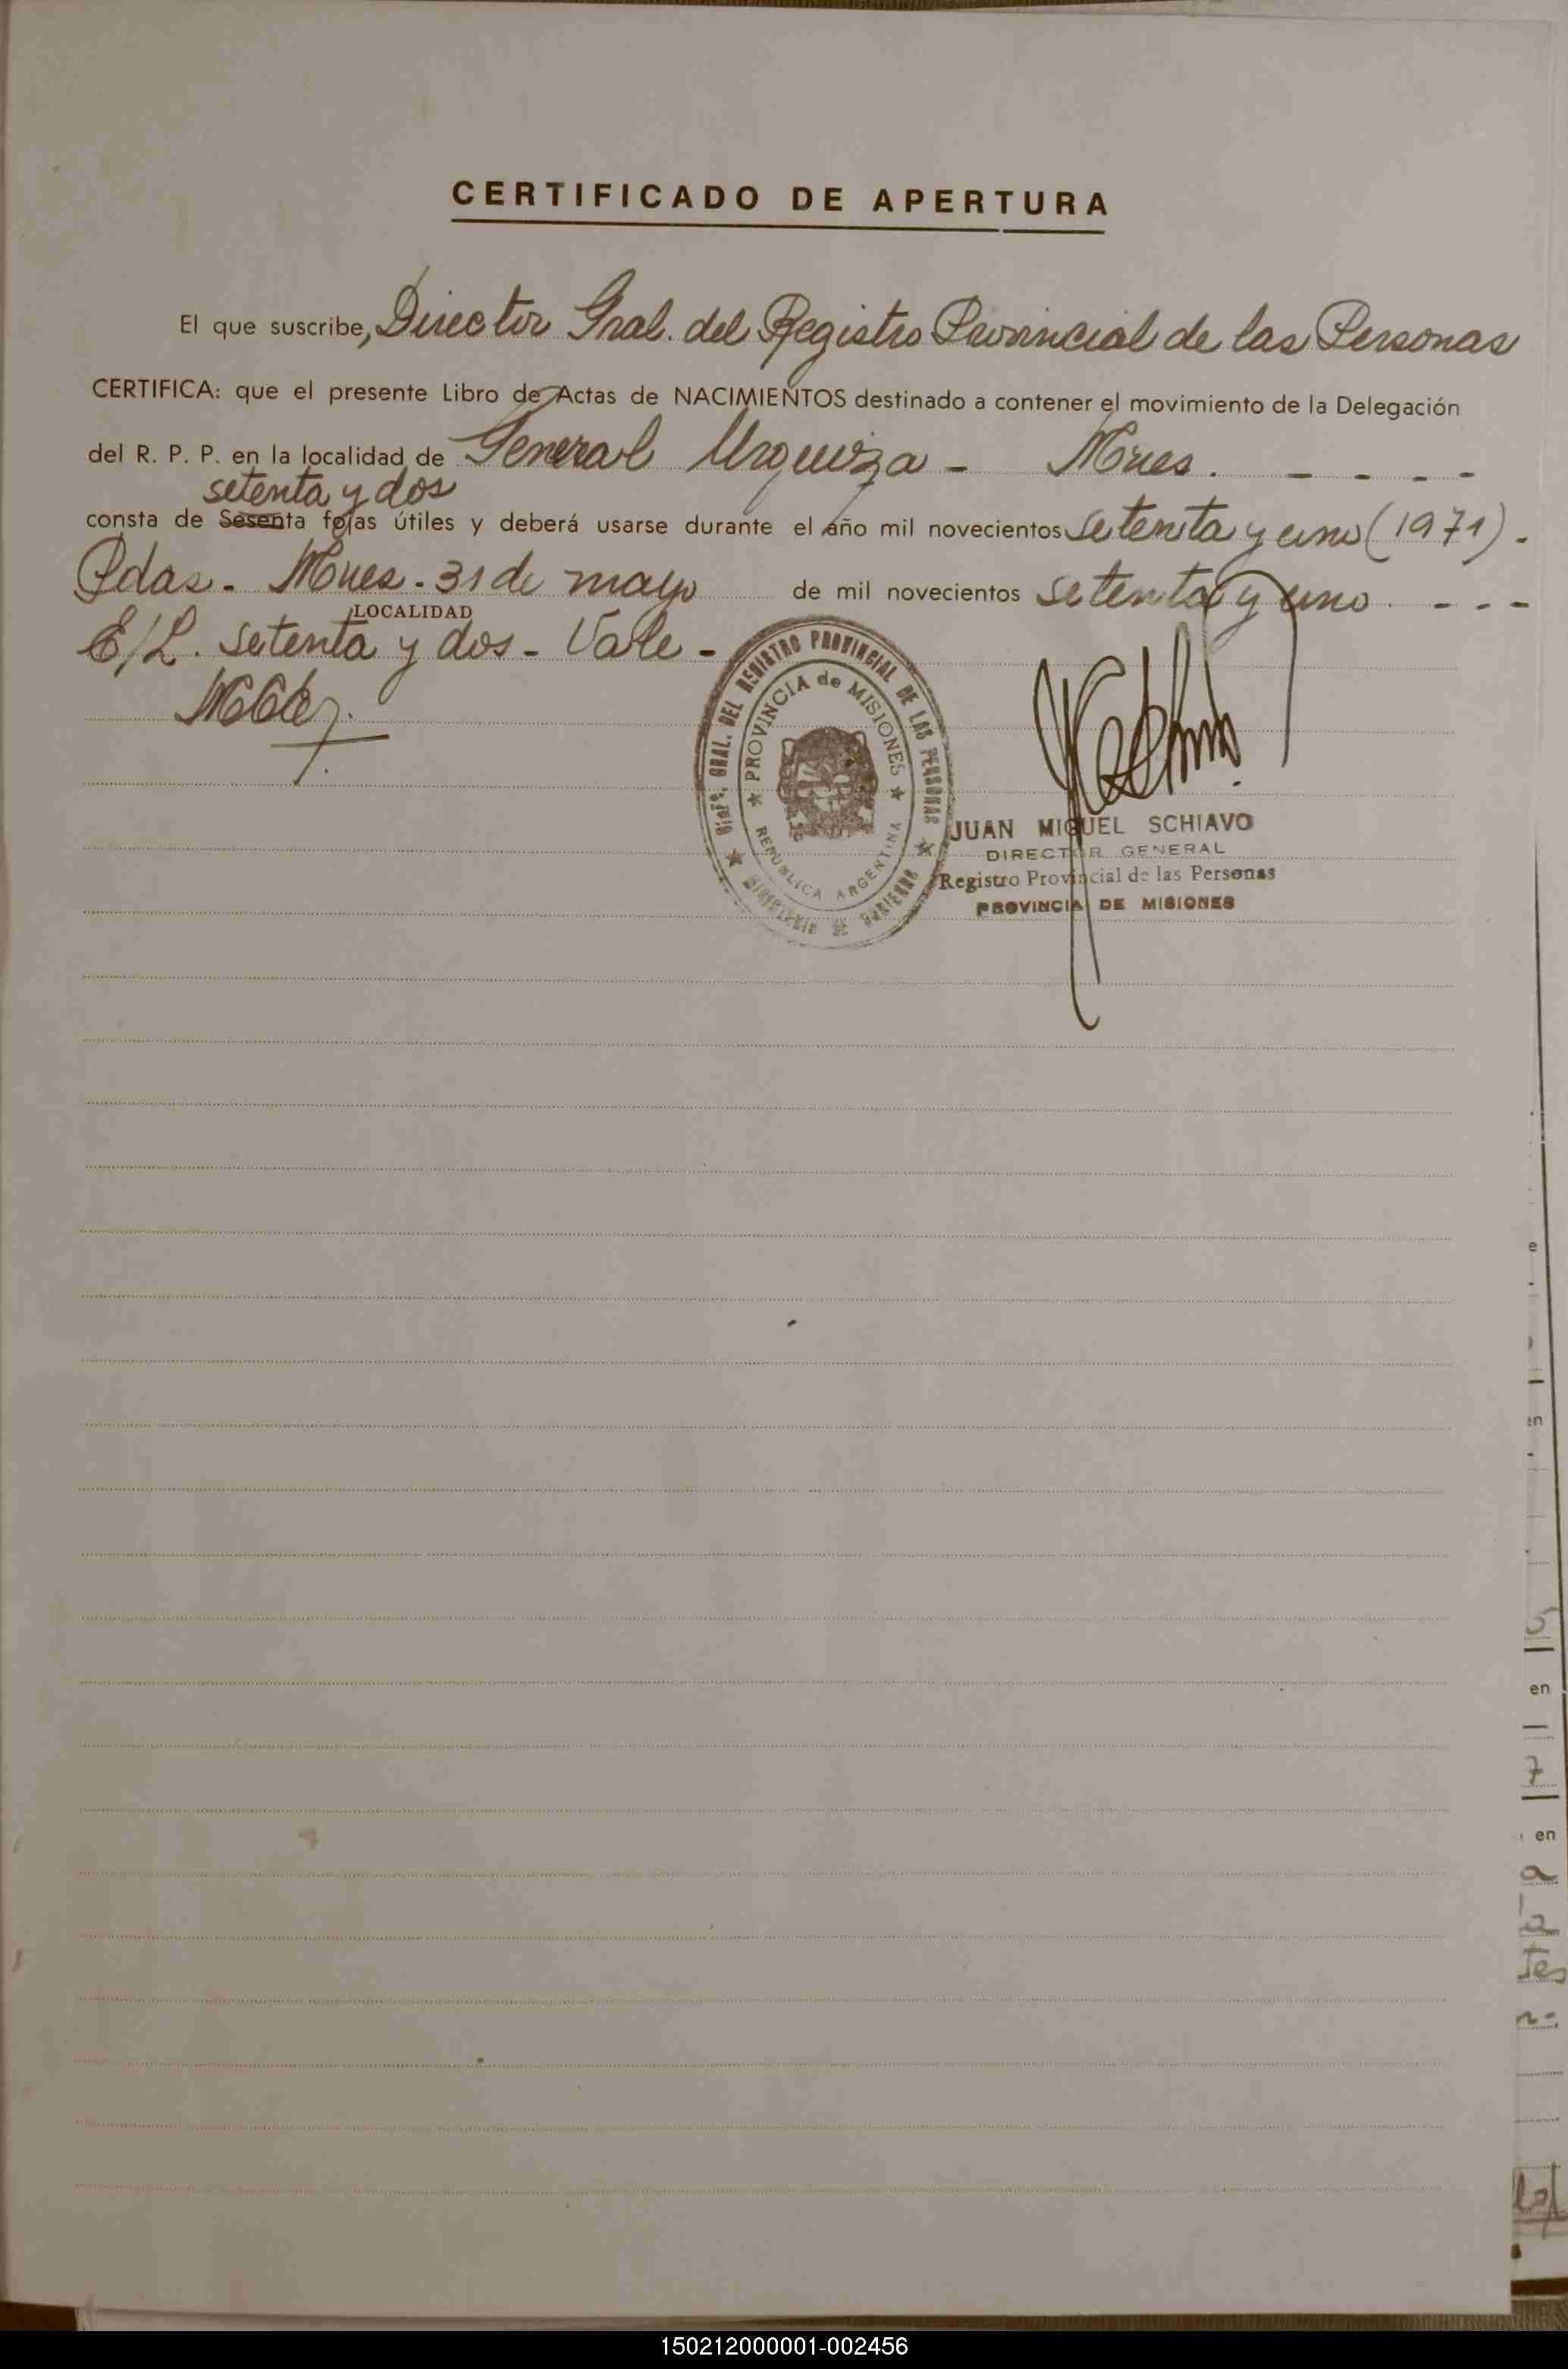 CERTIFICADO DE APERTURA
El que suscribe, Director Gral. del Registro Provincial de las Personas
CERTIFICA: que el presente Libro de Actas de NACIMIENTOS destinado a contener el movimiento de la Delegación
del R. P. P. en la localidad de General Urquiza - Mnes. - - - -
setenta y dos
consta de Sesenta fojas útiles y deberá usarse durante el año mil novecientos setenta y uno (1971).-
Pdas. Mnes. 31 de mayo de mil novecientos setenta y uno. - - -
LOCALIDAD
E/L. setenta y dos - Vale -
DIREC. GRAL. DEL REGISTRO PROVINCIAL DE LAS PERSONAS
PROVINCIA de MISIONES
REPUBLICA ARGENTINA
MINISTERIO DE GOBIERNO
JUAN MIGUEL SCHIAVO
DIRECTOR GENERAL
Registro Provincial de las Personas
PROVINCIA DE MISIONES
e
en
5
en
7
en
a
tes
150212000001-002456